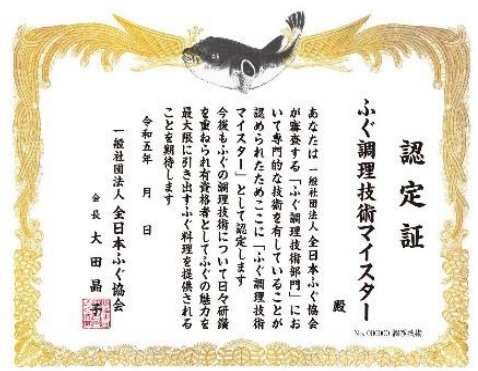 認定証
ふぐ調理技術マイスター
殿
No. 000000 調理技術
あなたは 一般社団法人 全日本ふぐ協会
が審査する「ふぐ調理技術部門」にお
いて専門的な技術を有していることが
認められたためここに「ふぐ調理技術
マイスター」として認定します
今後もふぐの調理技術について日々研鑽
を重ねられ有資格者としてふぐの魅力を
最大限に引き出すふぐ料理を提供される
ことを期待します
令和五年 月 日
一般社団法人 全日本ふぐ協会
会長 大田晶子